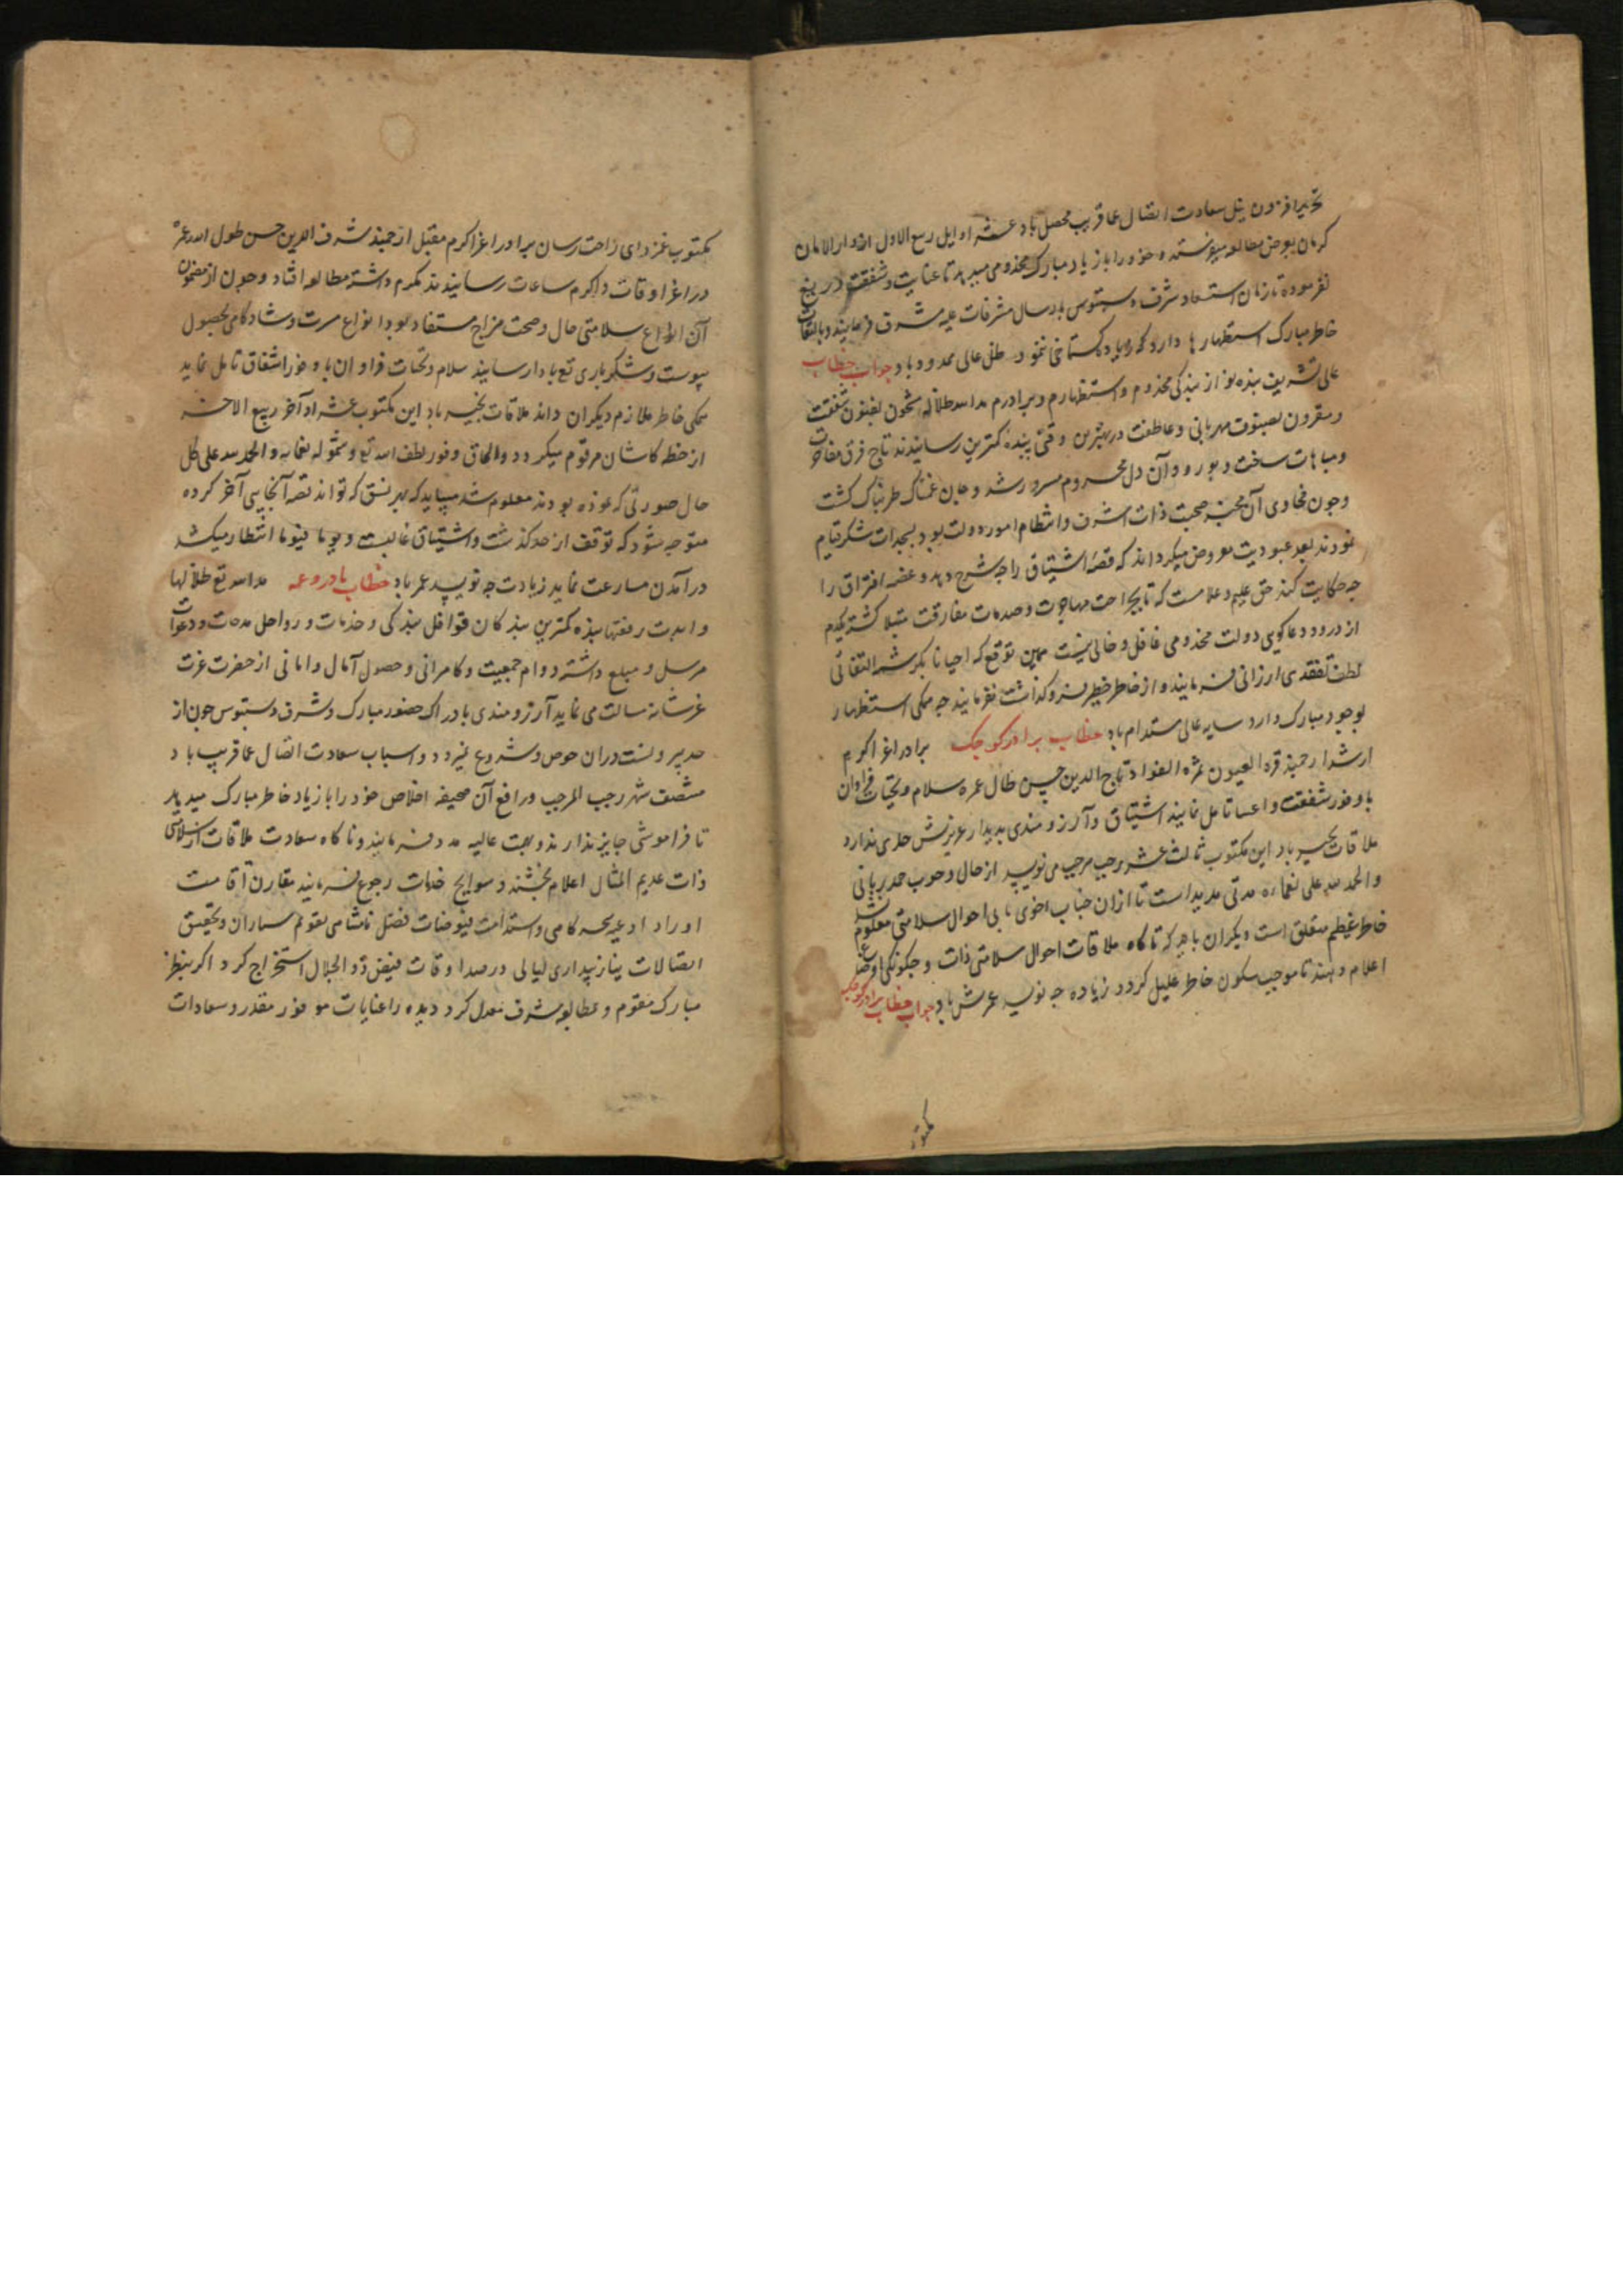 تحریر افزون نیل سعادت اتصال عما قریب محصل باد عشر اوایل ربیع الاول از دار الامان
کرمان بعرض مطالعه میفرستد و خود را با زیاد مبارک مخدومی میدهد تا عنایت و شفقت دریغ
نفرموده تا زمان استسعاد شرف دستبوس بارسال مشرفات علیه مشرف فرمایند و بالتفات
خاطر مبارک استظهارها دارد که زیاد کستاخی ننمود ظل عالی ممدود باد جواب خطاب
عالی تشریف بنده نواز از بندکی مخدوم و استظهارم و برادرم مد الله ظلاله مشحون بفنون شفقت
و مقرون بصنوف مهربانی و عاطفت در بهترین وقتی ببنده کمترین رسانیدند تاج فرق مفاخرت
و مباهات ساخت و بورود آن دل محروم مسرور شد و جان غمناک طربناک کشت
و چون فحاوی آن مخبر صحت ذات اشرف و انتظام امور دولت بود بسجدات شکر قیام
نمودند بعد عبودیت معروض میکرداند که قصه اشتیاق را چه شرح دهد و غصه افتراق را
چه حکایت کند حق علیم و علامست که تا بجراحت مهاجرت و صدمات مفارقت مبتلا کشته یکدم
از درود دعاکوی دولت مخدومی غافل و خالی نیست همین توقع که احیانا بکوشه التفاتی
لطف تفقدی ارزانی فرمایند و از خاطر خطیر فروکذاشت نفرمایند چه همکی استظهار
بوجود مبارک دارد سایه عالی مستدام باد خطاب برادر کوچک برادر اعز اکرم
ارشد ارجمند قرة العیون ثمرة الفواد تاج الدین حسین طال عمره سلام و تحیات فراوان
با وفور شفقت و اعتنا تامل نمایند اشتیاق و آرزومندی بدیدار عزیزش حدی ندارد
ملاقات بخیر باد این مکتوب ثالث عشر رجب مرجب می نویسد از حال وجوب حمد ربانی
و الحمد لله علی نعمائه مدتی مدید است تا از آن جناب اخوی ما بی احوال سلامتی معلوم نشد
خاطر عظیم متعلق است دیکران باید که تا کاه ملاقات احوال سلامتی ذات و چکونکی اوضاع
اعلام دهند تا موجب سکون خاطر علیل کردد زیاده چه نویسد عمرش باد جواب خطاب برادر کوچک
مکتوب
مکتوب غمزدای راحت رسان برادر اعز اکرم مقبل ارجمند شرف الدین حسن طول الله عمره
در اعز اوقات و اکرم ساعات رسانیدند مکرم داشته مطالعه افتاد و چون از مضمون
آن انواع سلامتی حال و صحت مزاج مستفاد بود انواع مسرت و شادکامی بحصول
پیوست و شکر باری تع بادا رسانید سلام و تحیات فراوان با وفور اشفاق تامل نماید
همکی خاطر ملازم دیکران داند ملاقات بخیر باد این مکتوب عشر اواخر ربیع الاخر
از خطه کاشان مرقوم میکردد و الحاق وفور لطف الله تع و شمول نعمائه و الحمد لله علی کل
حال صورتی که نموده بودند معلوم شد میباید که بهر نسق که تواند قصه آنجایی آخر کرده
متوجه شود که توقف از حد کذشت و اشتیاق غالبست و یوما فیوما انتظار میکشد
در آمدن مسارعت نماید زیادت چه نویسد عمر باد خطاب با در و عمه مد الله تع ظلالها
و ابدت رفعتها بنده کمترین بندکان قوافل بندکی و خدمات و رواحل مدحات و دعوات
مرسل و مبلغ داشته دوام جمعیت و کامرانی و حصول آمال و امانی از حضرت عزت
عز شانه مسالت می نماید آرزومندی بادراک حضور مبارک و شرف دستبوس چون از
حد بیرونست در آن خوض و شروع نمیرود و اسباب سعادت اتصال عما قریب باد
منتصف شهر رجب المرجب و رافع آن صحیفه اخلاص خود را با زیاد خاطر مبارک میدهد
تا فراموشی جایز ندارند و بهمت عالیه مدد فرمایند و تا کاه سعادت ملاقات از سلامتی
ذات عدیم المثال اعلام بخشند و سوایح خدمات رجوع فرمایند مقارن اقامت
اوراد ادعیه صبحکاهی و استدامت فیوضات فضل نامتناهی بقوم ساران و تحقیق
اتصالات نیاز بیداری لیالی در صدا وقات فیض ذو الجلال استخراج کرد اکر بنظر
مبارک مقوم و بمطالعه مشرف معدل کردد بنده را عنایات موفور مقدر و سعادات